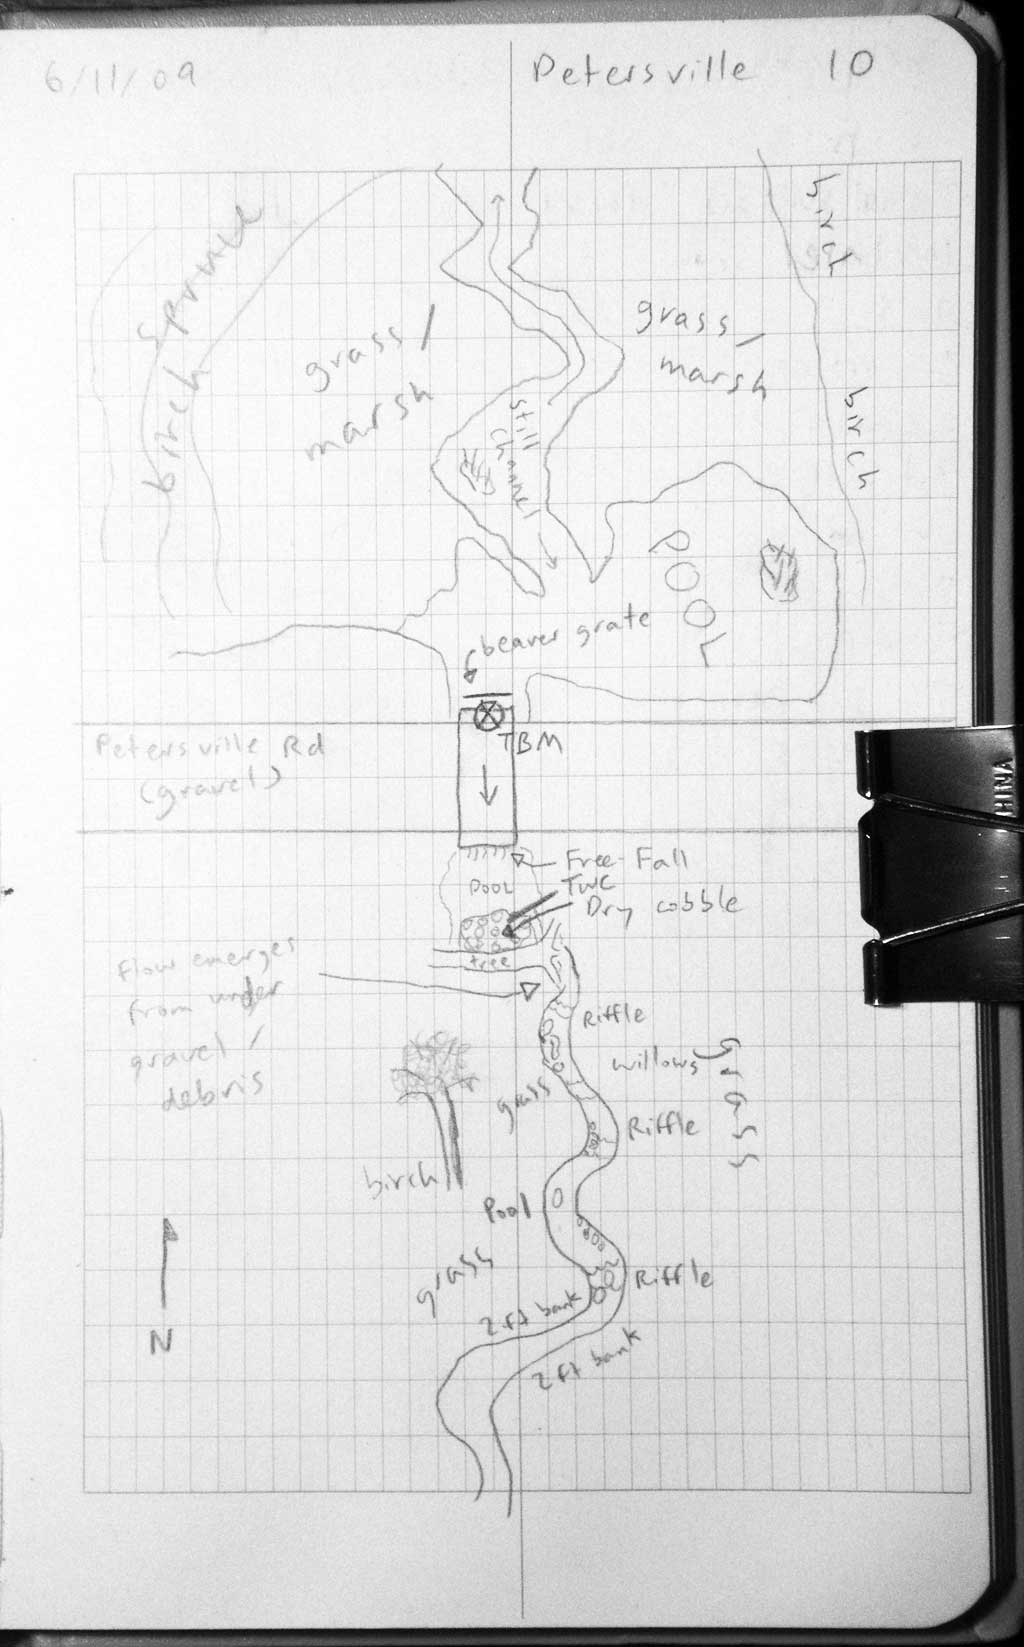 6/11/09
Petersville 10
birch
spruce
birch
grass/
marsh
grass/
marsh
birch
still
channel
POOL
beaver grate
TBM
Petersville Rd
(gravel)
Free-Fall
POOL
TWC
Dry cobble
tree
Flow emerges
from under
gravel/
debris
Riffle
willows
grass
grass
Riffle
birch
Pool
grass
Riffle
2 ft bank
2 ft bank
N
CHINA